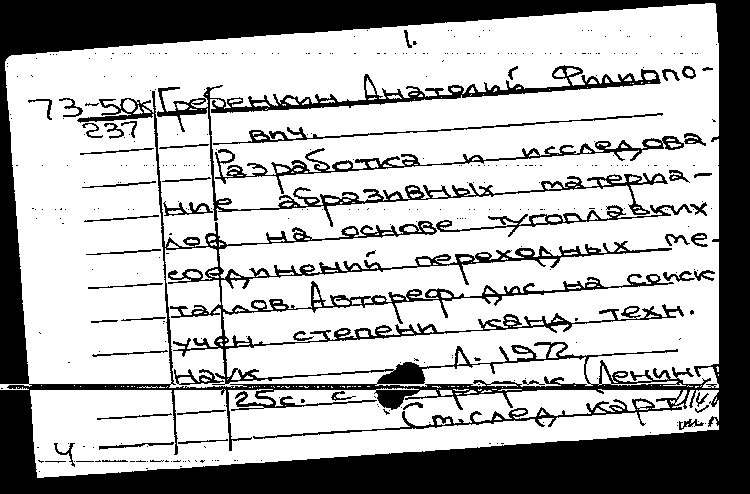 1.
73-50к Гребенкин, Анатолий Филиппо-
237 вич.
Разработка и исследова-
ние абразивных материа-
лов на основе тугоплавких
соединений переходных ме-
таллов. Автореф. дис на соиск
учен. степени канд. техн.
наук. Л., 1972.
25с. с график (Ленингр
Ст. след. карт
4